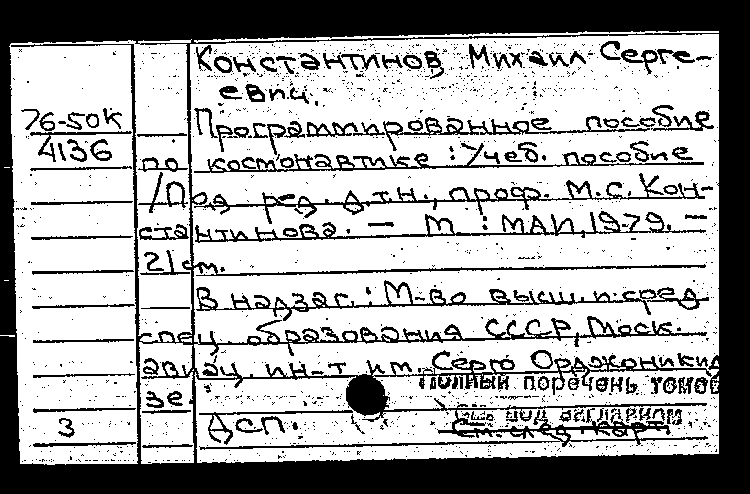 Константинов Михаил Серге-
евич.
76-50К Программированное пособие
4136 по космонавтике : Учеб. пособие
/Под ред. д.т.н., проф. М.С. Кон-
стантинова. — М : МАИ, 1979. —
21 см.
В надзаг. : М-во высш. и сред
спец образования СССР, Моск.
авиац. ин-т им. Серго Орджоникид
зе. Полный перечень томов
см. под заглавием
3 ДСП. См. след карт.